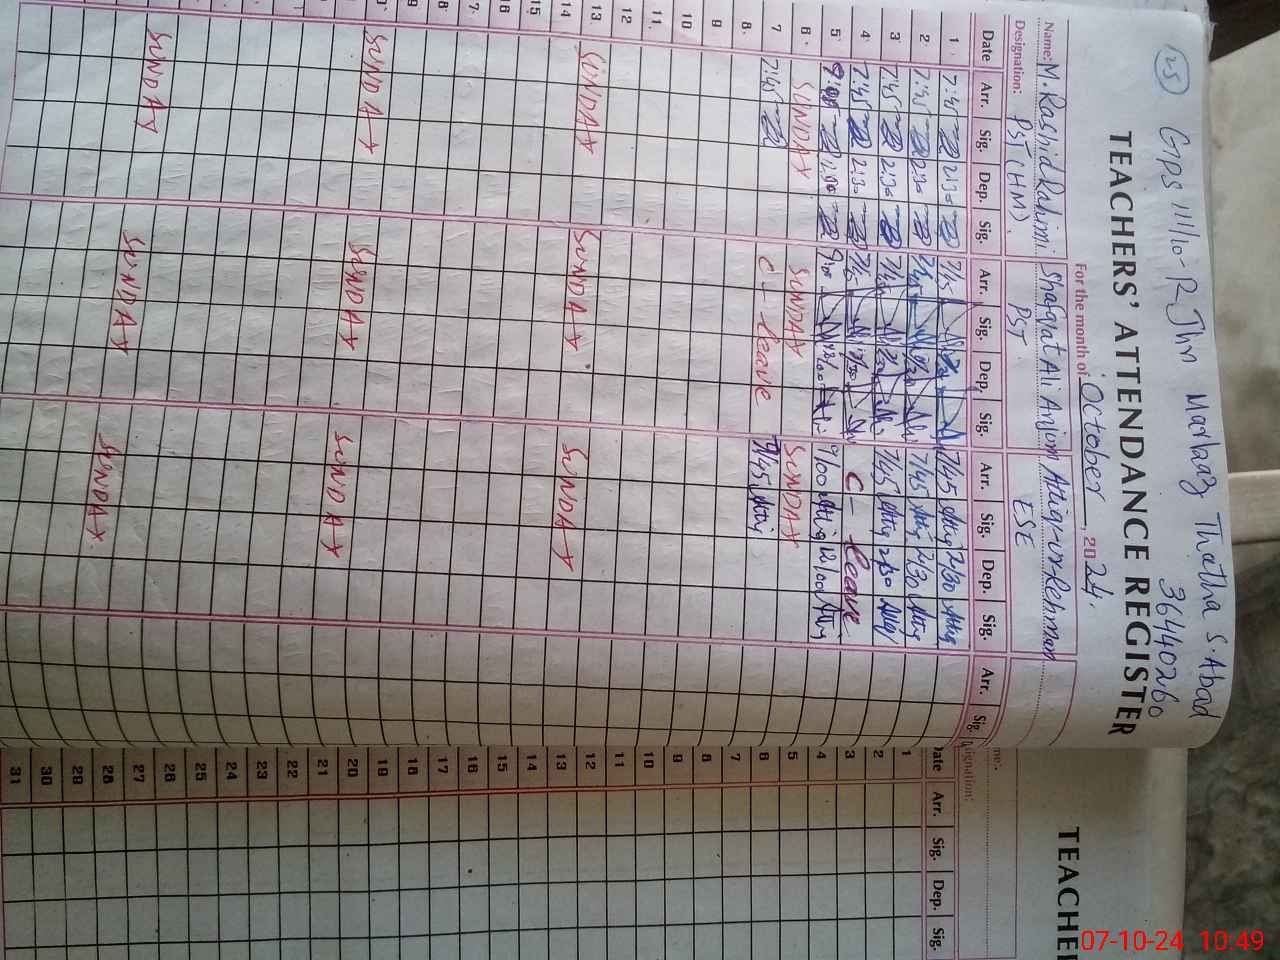 (25) GPS 111/10-R Jhn Markaz Thatha S.Abad
36440260
TEACHERS' ATTENDANCE REGISTER
For the month of October, 2024.
Name: M. Rashid Rahimi Shafqat Ali Anjum Attiq-ur-Rehman
Designation: PST (HM). PST ESE
Date Arr. Sig. Dep. Sig. Arr. Sig. Dep. Sig. Arr. Sig. Dep. Sig. Arr. Sig.
1 7:45 2:30 7/45 Attiq 2/30 Attiq
2 7:45 2:30 7/45 Attiq 2/30 Attiq
3 7:45 2:30 7/45 Attiq 2/30 Attiq
4 7:45 2:30 C - leave
5 9:00 12:00 9:00 12/00 9/00 Attiq 12/00 Attiq
6 SUNDAY SUNDAY SUNDAY
7 7:45 C - leave 7/45 Attiq
8
9
10
11
12
13 SUNDAY SUNDAY SUNDAY
14
15
16
17
18
19
SUNDAY SUNDAY SUNDAY
SUNDAY SUNDAY SUNDAY
TEACHE
me:
signation:
Date Arr. Sig. Dep. Sig.
1
2
3
4
5
6
7
8
9
10
11
12
13
14
15
16
17
18
19
20
21
22
23
24
25
26
27
28
29
30
31
07-10-24 10:49